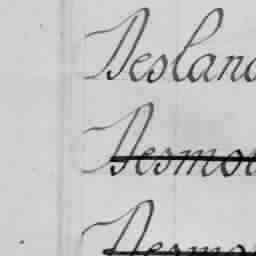 Desland
Desmou
Desmou